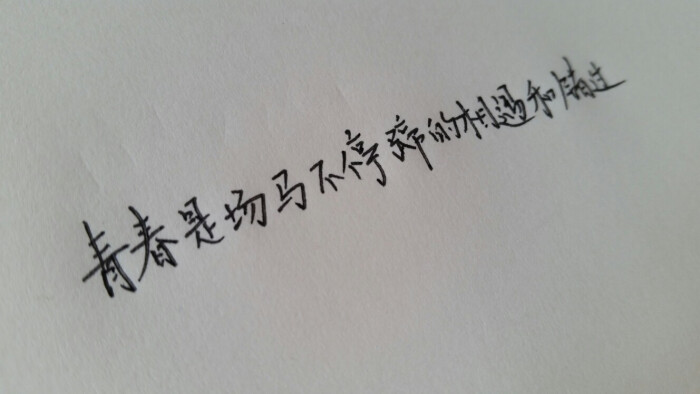 青春是场马不停蹄的相遇和错过